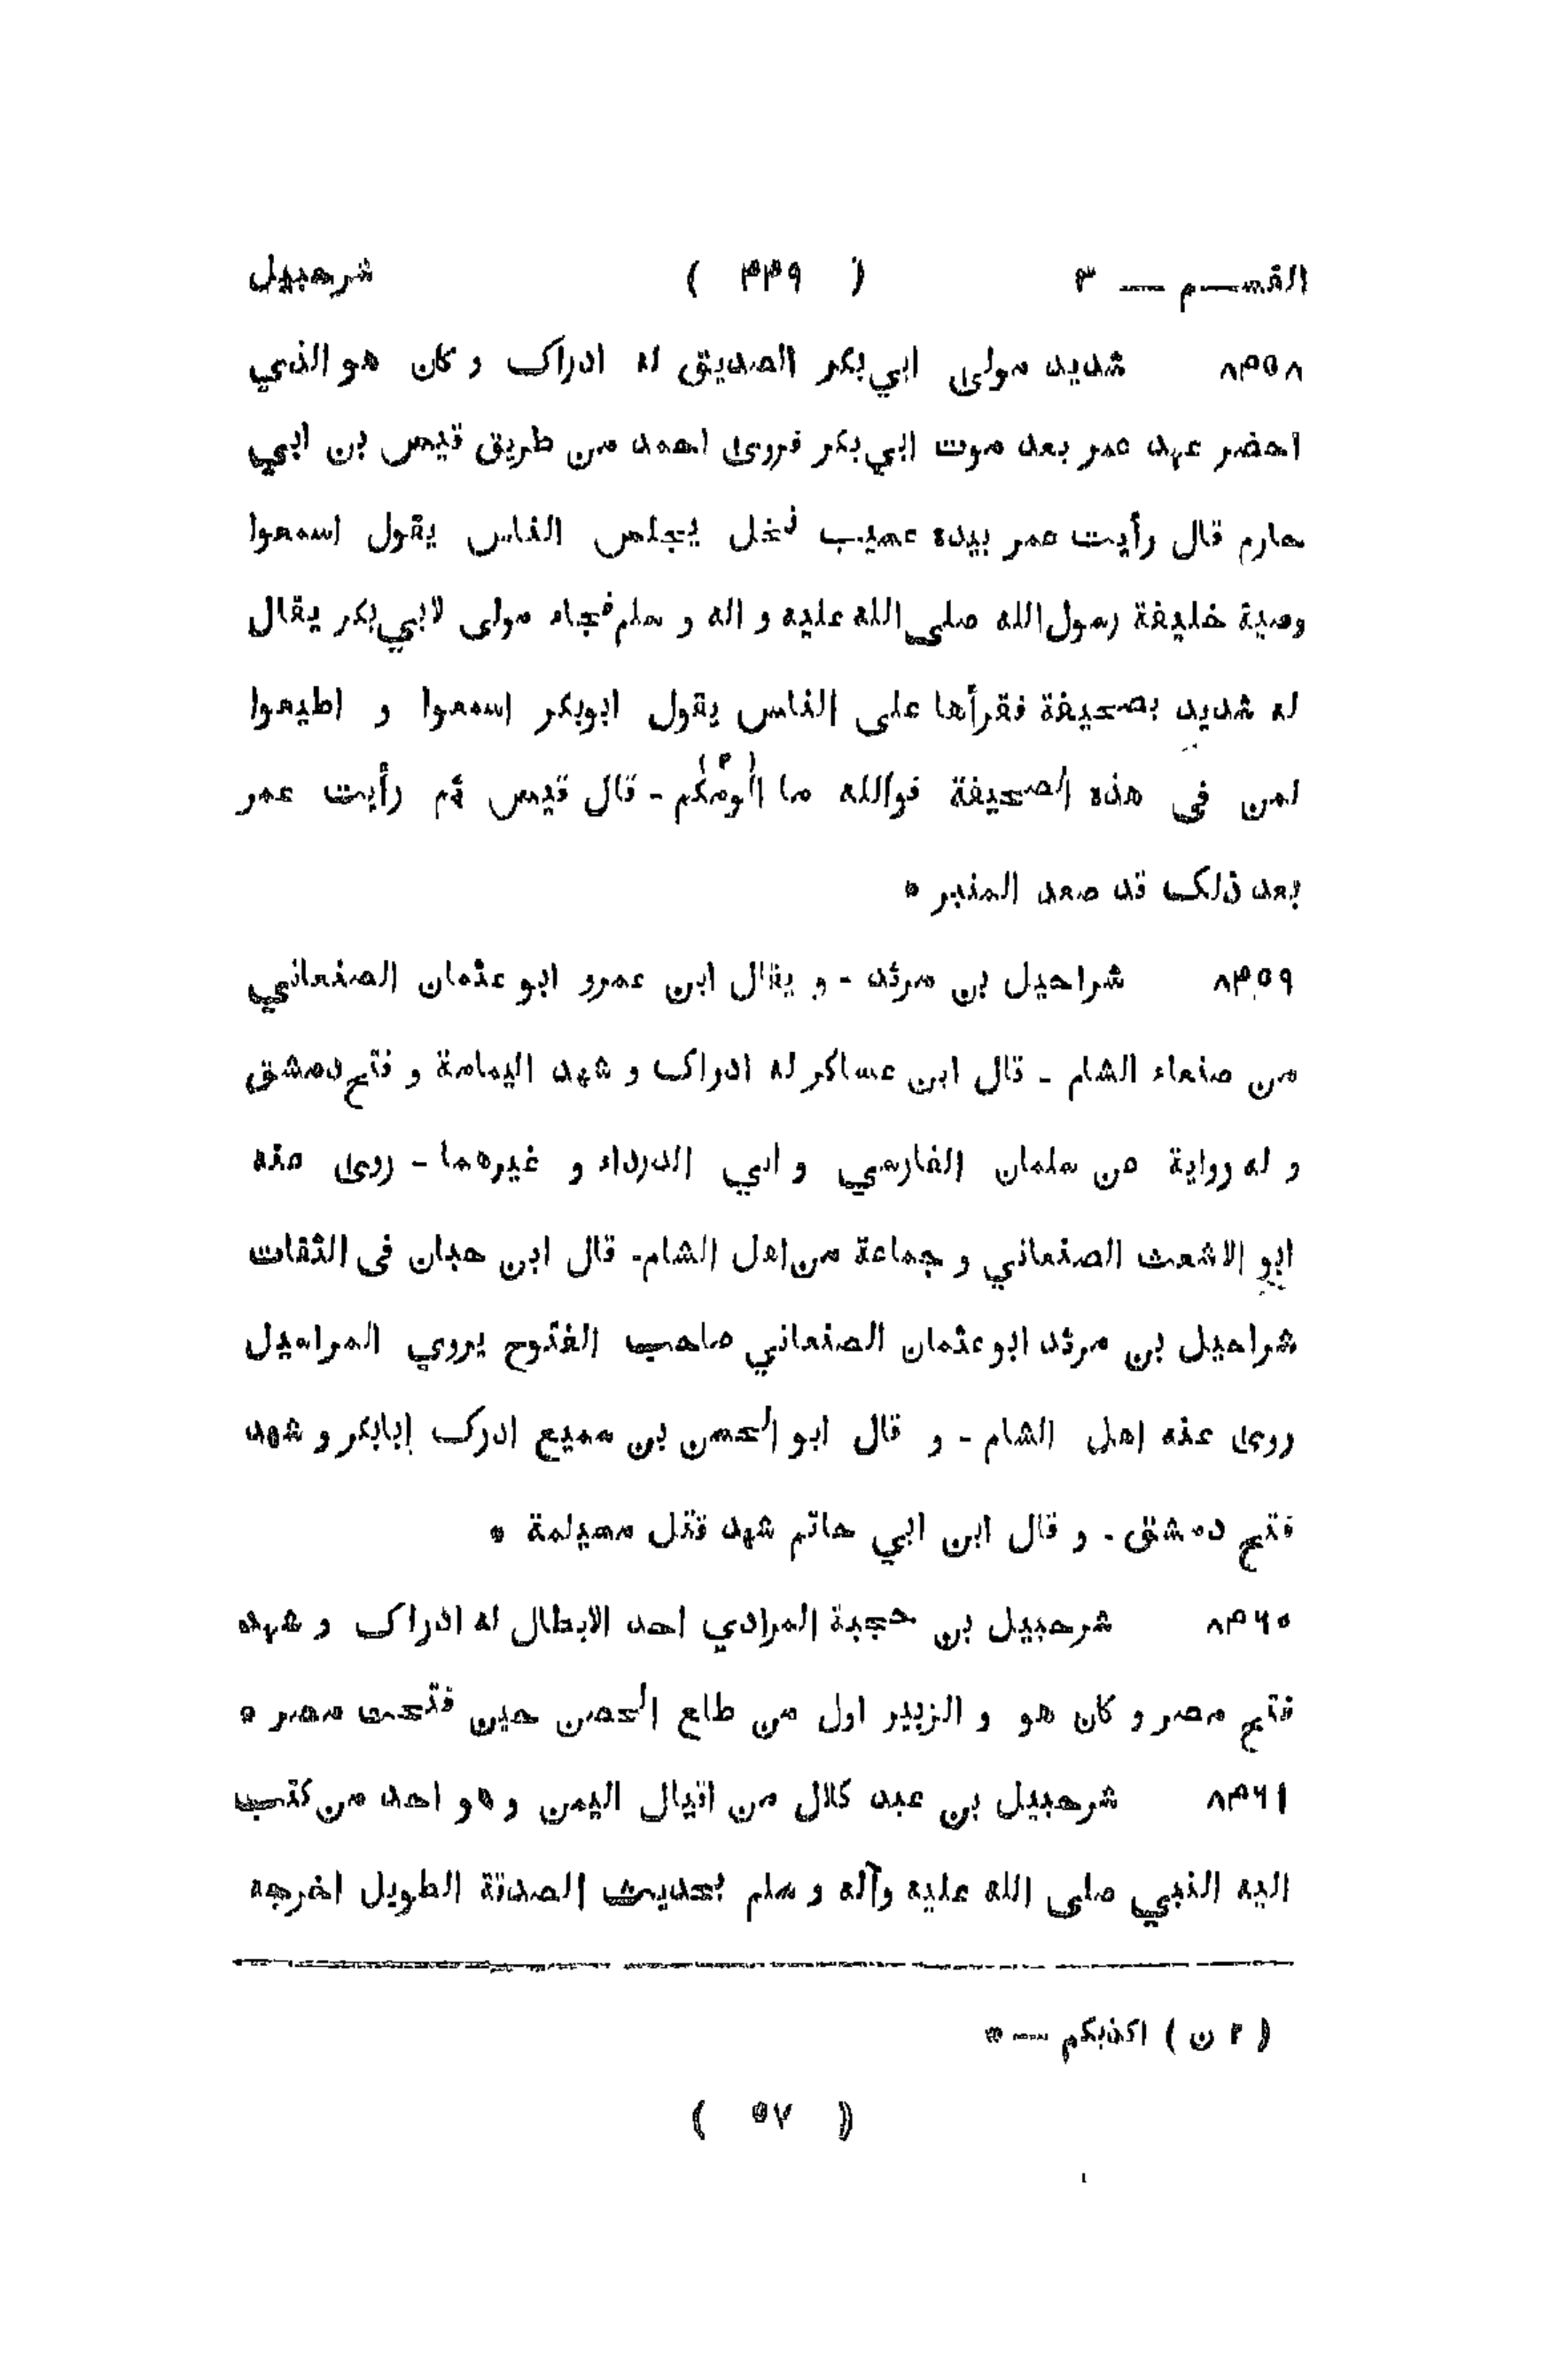 القسم — ٣ ( ٤٤٩ ) شرحبيل
٨٤٥٨ شديد مولى ابي بكر الصديق له ادراك و كان هو الذي
احضر عهد عمر بعد موت ابي بكر فروى احمد من طريق قيس بن ابي
حازم قال رأيت عمر بيده عسيب نخل يجلس الناس يقول اسمعوا
وصية خليفة رسول الله صلى الله عليه و اله و سلم فجاء مولى لابي بكر يقال
له شديد بصحيفة فقرأها على الناس يقول ابوبكر اسمعوا و اطيعوا
لمن في هذه الصحيفة فوالله ما الومكم (٢) - قال قيس ثم رأيت عمر
بعد ذلك قد صعد المنبر *
٨٤٥٩ شراحيل بن مرثد - و يقال ابن عمرو ابو عثمان الصنعاني
من صنعاء الشام - قال ابن عساكر له ادراك و شهد اليمامة و فتح دمشق
و له رواية عن سلمان الفارسي و ابي الدرداء و غيرهما - روى عنه
ابو الاشعث الصنعاني و جماعة من اهل الشام - قال ابن حبان فى الثقات
شراحيل بن مرثد ابو عثمان الصنعاني صاحب الفتوح يروي المراسيل
روى عنه اهل الشام - و قال ابو الحسن بن سميع ادرك ابابكر و شهد
فتح دمشق - و قال ابن ابي حاتم شهد قتل مسيلمة *
٨٤٦٠ شرحبيل بن حجية المرادي احد الابطال له ادراك و شهد
فتح مصر و كان هو و الزبير اول من طلع الحصن حين فتحت مصر *
٨٤٦١ شرحبيل بن عبد كلال من اقيال اليمن و هو احد من كتب
اليه النبي صلى الله عليه وآله و سلم بحديث الصدقة الطويل اخرجه
( ٢ ن ) اكذبكم — *
( ٥٧ )